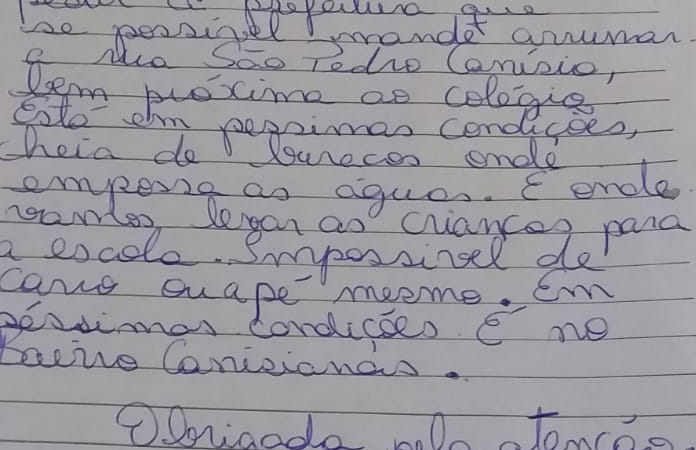 pedir a prefeitura que
se possivel mande arrumar
a rua São Pedro Canísio,
bem próxima ao colégio
Está em pessimas condições,
cheia de buracos onde
empossa as águas. É onde
vamos levar as crianças para
a escola. Impossivel de
carro ou a pé mesmo. Em
péssimas condições. É no
Bairro Canisianas.
Obrigada pela atenção